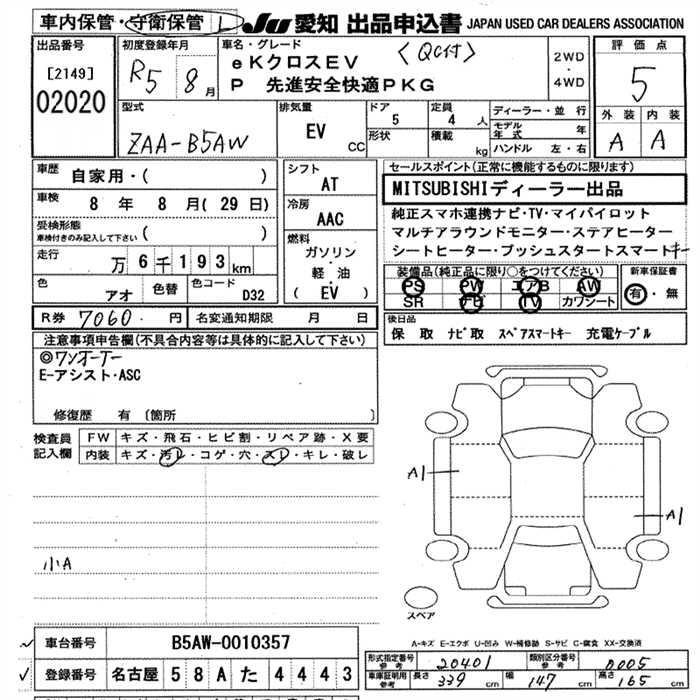 車内保管・守衛保管 L JU 愛知 出品申込書 JAPAN USED CAR DEALERS ASSOCIATION
出品番号 [2149] 02020
初度登録年月 R5 8月
車名・グレード 〈QC付〉
eKクロスEV
P 先進安全快適PKG
2WD・4WD
評価点 5
外装 A 内装 A
型式 ZAA-B5AW
排気量 EV CC
ドア 5 定員 4人
形状 積載 kg
ディーラー・並行
モデル年式 年
ハンドル 左・右
車歴 自家用・( )
車検 8年 8月(29日)
受検形態 車検付きのみ記入して下さい ( )
走行 万6千193km
色 アオ 色替 色コード D32
シフト AT
冷房 AAC
燃料 ガソリン・軽油・(EV)
セールスポイント(正常に機能するものに限ります)
MITSUBISHIディーラー出品
純正スマホ連携ナビ・TV・マイパイロット
マルチアラウンドモニター・ステアヒーター
シートヒーター・プッシュスタートスマートキー
装備品(純正品に限り○をつけてください)
PS PW エアB AW
SR ナビ TV カワシート
新車保証書 有・無
R券 7060円 名変通知期限 月 日
後日品
保 取 ナビ取 スペアスマートキー 充電ケーブル
注意事項申告欄(不具合内容等は具体的に記入して下さい)
◎ワンオーナー
E-アシスト・ASC
修復歴 有〔箇所 〕
検査員記入欄
FW キズ・飛石・ヒビ割・リペア跡・X要
内装 キズ・汚レ・コゲ・穴・スレ・キレ・破レ
小A
A1
A1
スペア
A-キズ E-エクボ U-凹み W-補修跡 S-サビ C-腐食 XX-交換済
車台番号 B5AW-0010357
登録番号 名古屋 58Aた4443
形式指定番号 参考 20401 類別区分番号 参考 0005
車庫証明用 参考 長さ 339cm 幅 147cm 高さ 165cm